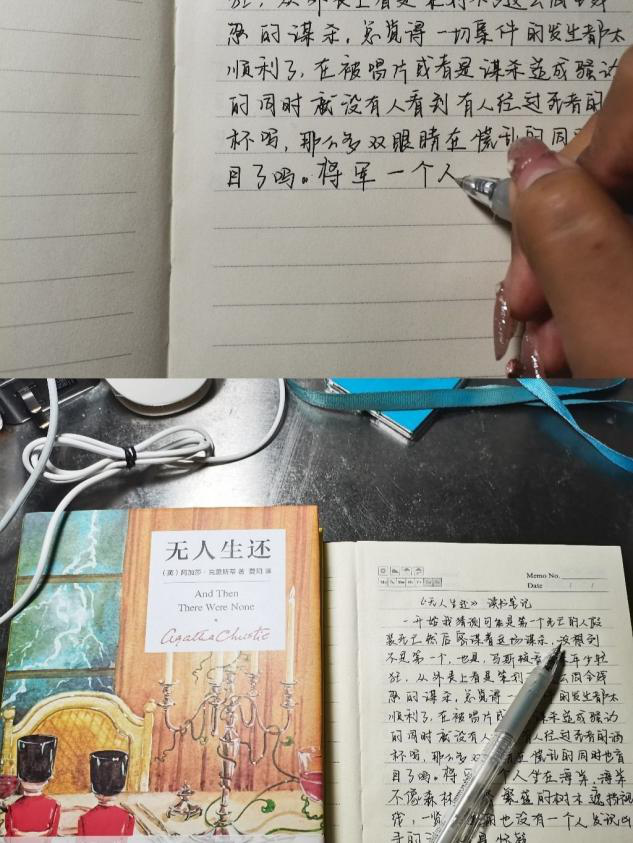 狂，从外表上看是策划不了这么周全残
忍的谋杀，总觉得一切案件的发生都太
顺利了，在被唱片或者是谋杀造成骚动
的同时就没有人看到有人经过死者的
杯吗，那么多双眼睛在慌乱的同
目了吗。将军一个人
无人生还
（英）阿加莎·克里斯蒂 著 夏阳 译
And Then
There Were None
Agatha Christie
Memo No.
Date / /
Mo Tu We Th Fr Sa Su
《无人生还》读书笔记
一开始我猜测可能是第一个死亡的人假
装死亡然后密谋着这场谋杀，没想到
不是第一个，也是，马斯顿年少轻
狂，从外表上看是策划么周全残
忍的谋杀，总觉得一的发生都太
顺利了，在被唱片谋杀造成骚动
的同时就没有人人经过死者的酒
杯吗，那么多双在慌乱的同时也盲
目了吗。将军个人坐在海岸，海岸
不像森林繁盛的树木遮挡视
线，一览也没有一个人发现凶
手的